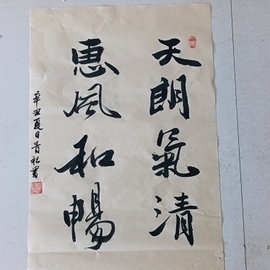 天朗氣清
惠風和暢
辛丑夏日